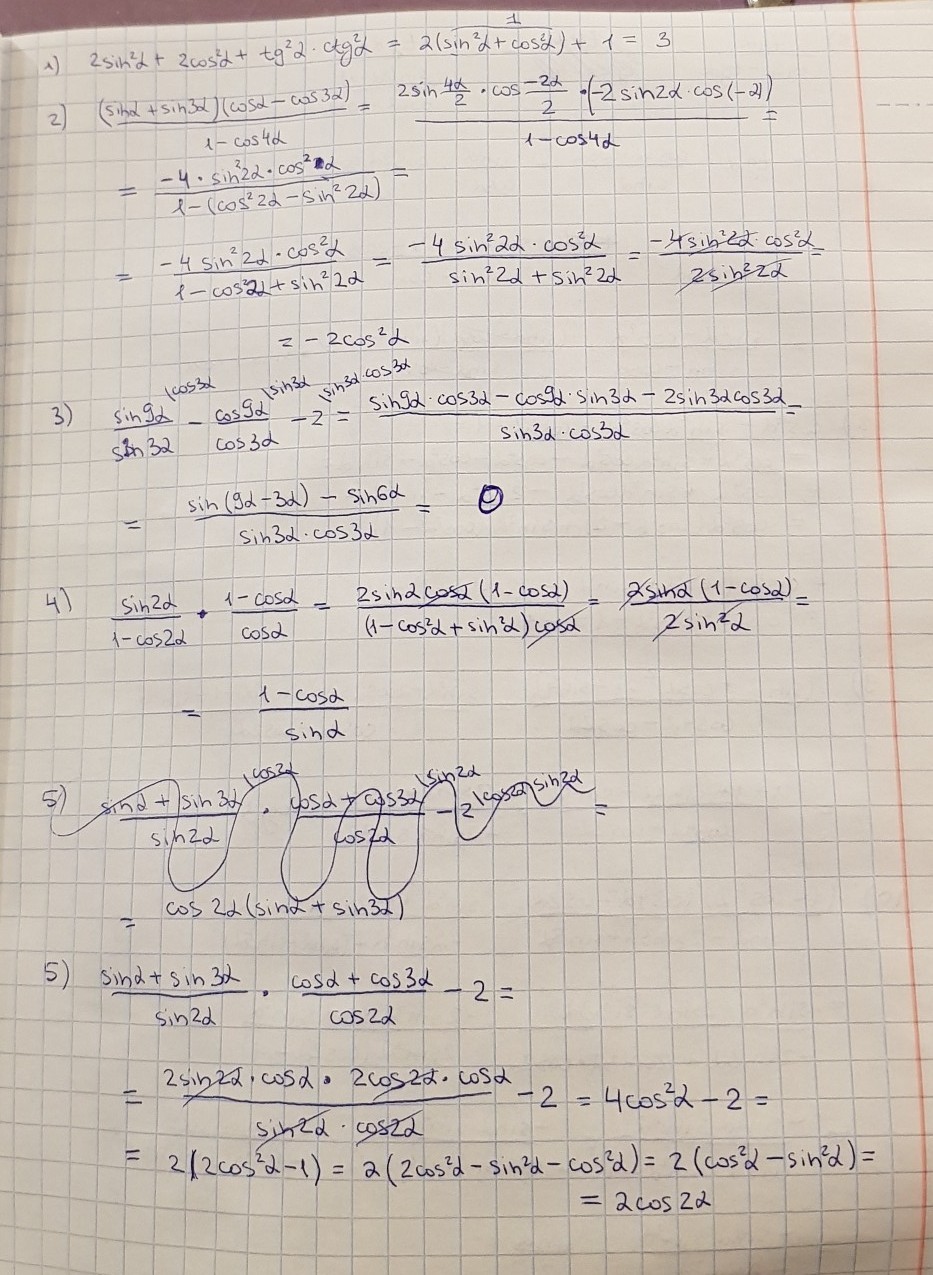 1) 2sin²α + 2cos²α + tg²α · ctg²α = 2(sin²α + cos²α) + 1 = 3
1
2) (sinα + sin3α)(cosα − cos3α) / 1 − cos4α = 2sin 4α/2 · cos −2α/2 · (−2sin2α · cos(−α)) / 1 − cos4α =
= −4 · sin²2α · cos²α / 1 − (cos²2α − sin²2α) =
= −4sin²2α · cos²α / 1 − cos²2α + sin²2α = −4sin²2α · cos²α / sin²2α + sin²2α = −4sin²2α · cos²α / 2sin²2α =
= −2cos²α
3) sin9α / sin3α \cos3α − cos9α / cos3α \sin3α − 2 \sin3α·cos3α = sin9α · cos3α − cos9α · sin3α − 2sin3αcos3α / sin3α · cos3α =
= sin(9α−3α) − sin6α / sin3α · cos3α = 0
4) sin2α / 1−cos2α · 1−cosα / cosα = 2sinαcosα(1−cosα) / (1−cos²α + sin²α)cosα = 2sinα(1−cosα) / 2sin²α =
= 1−cosα / sinα
5) sinα + sin3α / sin2α \cos2α · cosα + cos3α / cos2α \sin2α − 2 \cos2α sin2α =
= cos2α(sinα + sin3α)
5) sinα + sin3α / sin2α · cosα + cos3α / cos2α − 2 =
= 2sin2α · cosα · 2cos2α · cosα / sin2α · cos2α − 2 = 4cos²α − 2 =
= 2(2cos²α−1) = 2(2cos²α − sin²α − cos²α) = 2(cos²α − sin²α) =
= 2cos2α